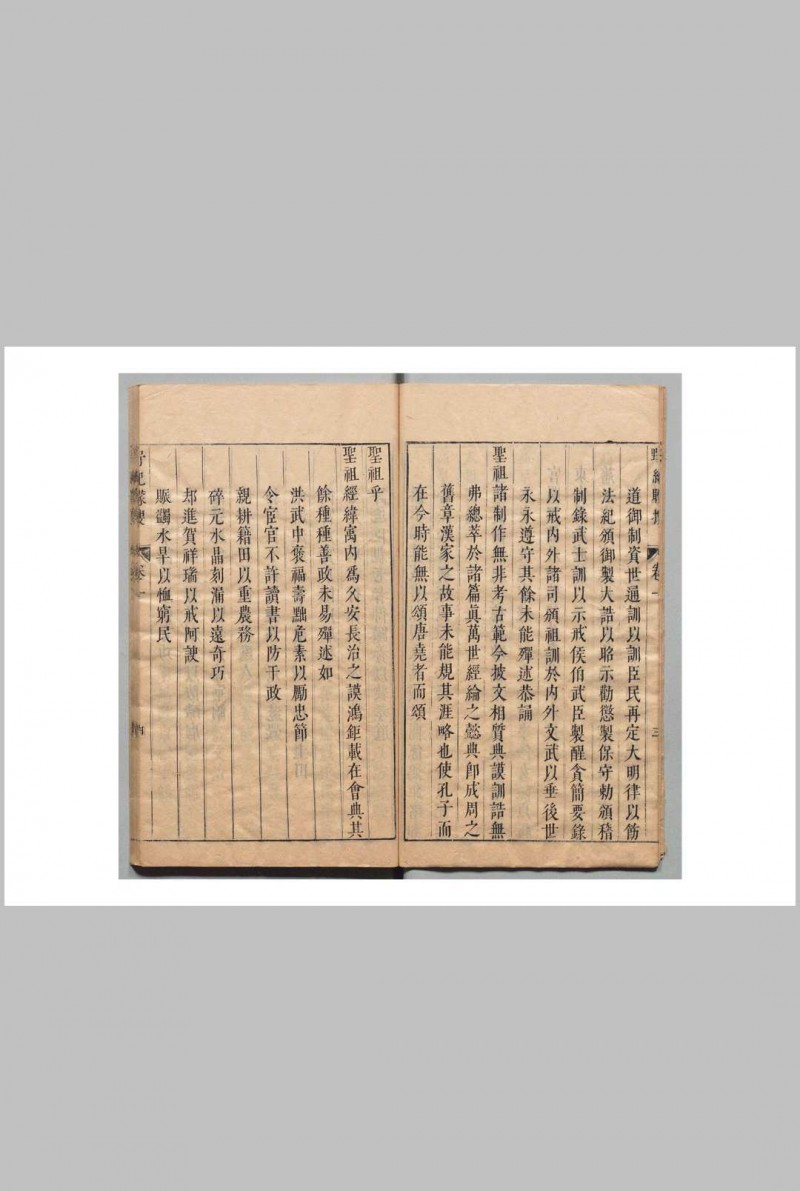 道御制資世通訓以訓臣民再定大明律以飭
法紀頒御製大誥以昭示勸懲製保守勅頒稽
制錄武士訓以示戒侯伯武臣製醒貪簡要錄
以戒内外諸司頒祖訓於内外文武以垂後世
永永遵守其餘未能殫述恭誦
聖祖諸制作無非考古範今披文相質典謨訓誥無
弗總萃於諸篇眞萬世經綸之懿典卽成周之
舊章漢家之故事未能規其涯略也使孔子而
在今時能無以頌唐堯者而頌
聖祖乎
聖祖經緯寓内爲久安長治之謨鴻鉅載在會典其
餘種種善政未易殫述如
洪武中褒福壽黜危素以勵忠節
令宦官不許讀書以防干政
親耕籍田以重農務
碎元水晶刻漏以遠奇巧
却進賀祥瑞以戒阿諛
賑蠲水旱以恤窮民
卷一
三
卷一
四